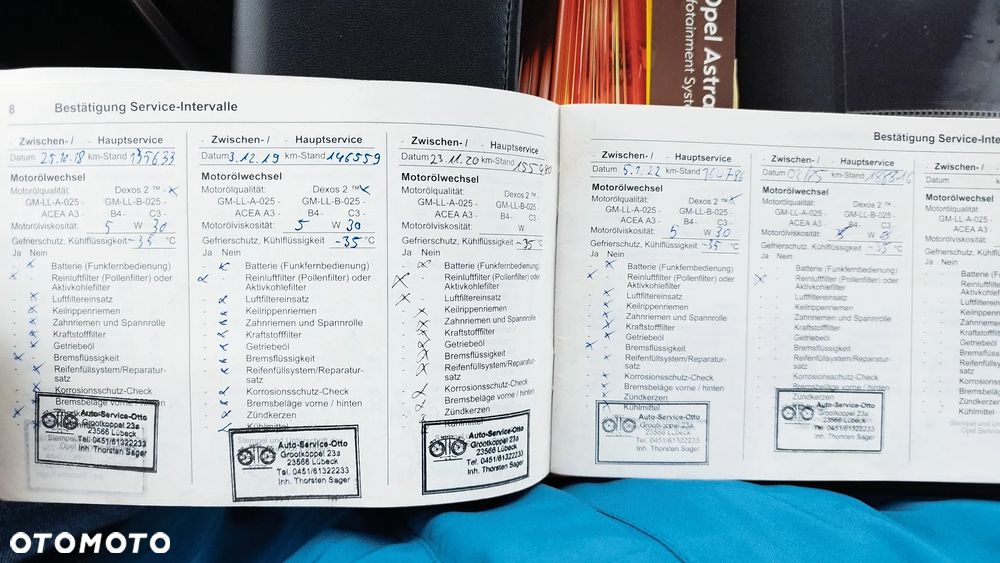 Opel Astra
Infotainment System
8 Bestätigung Service-Intervalle
Zwischen-/ - Hauptservice
Datum 25.10.18 km-Stand 135633
Motorölwechsel
Motorölqualität: Dexos 2 ™ - x
GM-LL-A-025 - GM-LL-B-025 -
ACEA A3 - B4 - C3 -
Motorölviskosität: 5 W 30
Gefrierschutz, Kühlflüssigkeit -35 °C
Ja Nein
Batterie (Funkfernbedienung)
Reinluftfilter (Pollenfilter) oder
Aktivkohlefilter
Luftfiltereinsatz
Keilrippenriemen
Zahnriemen und Spannrolle
Kraftstofffilter
Getriebeöl
Bremsflüssigkeit
Reifenfüllsystem/Reparatur-
satz
Korrosionsschutz-Check
Bremsbeläge vorne / hinten
Auto-Service-Otto
Grootkoppel 23a
23566 Lübeck
Tel. 0451/61322233
Inh. Thorsten Sager
- Zwischen-/ - Hauptservice
Datum 3.12.19 km-Stand 146559
Motorölwechsel
Motorölqualität: Dexos 2 ™
GM-LL-A-025 - GM-LL-B-025 -
ACEA A3 - B4 - C3 -
Motorölviskosität: 5 W 30
Gefrierschutz, Kühlflüssigkeit -35 °C
Ja Nein
Batterie (Funkfernbedienung)
Reinluftfilter (Pollenfilter) oder
Aktivkohlefilter
Luftfiltereinsatz
Keilrippenriemen
Zahnriemen und Spannrolle
Kraftstofffilter
Getriebeöl
Bremsflüssigkeit
Reifenfüllsystem/Reparatur-
satz
Korrosionsschutz-Check
Bremsbeläge vorne / hinten
Zündkerzen
Kühlmittel
Auto-Service-Otto
Grootkoppel 23a
23566 Lübeck
Tel. 0451/61322233
Inh. Thorsten Sager
- Zwischen-/ - Hauptservice
Datum 23.11.20 km-Stand 155480
Motorölwechsel
Motorölqualität: Dexos 2 ™ -
GM-LL-A-025 - GM-LL-B-025 -
ACEA A3 - B4 - C3 -
Motorölviskosität: W
Gefrierschutz, Kühlflüssigkeit -35 °C
Ja Nein
Batterie (Funkfernbedienung)
Reinluftfilter (Pollenfilter) oder
Aktivkohlefilter
Luftfiltereinsatz
Keilrippenriemen
Zahnriemen und Spannrolle
Kraftstofffilter
Getriebeöl
Bremsflüssigkeit
Reifenfüllsystem/Reparatur-
satz
Korrosionsschutz-Check
Bremsbeläge vorne / hinten
Zündkerzen
Auto-Service-Otto
Grootkoppel 23a
23566 Lübeck
Tel. 0451/61322233
Inh. Thorsten Sager
Bestätigung Service-Inte
Zwischen-/ - Hauptservice
Datum 5.1.22 km-Stand
Motorölwechsel
Motorölqualität: Dexos 2 ™
GM-LL-A-025 - GM-LL-B-025 -
ACEA A3 - B4 - C3 -
Motorölviskosität: 5 W 30
Gefrierschutz, Kühlflüssigkeit -35 °C
Ja Nein
Batterie (Funkfernbedienung)
Reinluftfilter (Pollenfilter) oder
Aktivkohlefilter
Luftfiltereinsatz
Keilrippenriemen
Zahnriemen und Spannrolle
Kraftstofffilter
Getriebeöl
Bremsflüssigkeit
Reifenfüllsystem/Reparatur-
satz
Korrosionsschutz-Check
Bremsbeläge vorne / hinten
Zündkerzen
Kühlmittel
Auto-Service-Otto
Grootkoppel 23a
23566 Lübeck
Tel. 0451/61322233
Inh. Thorsten Sager
Zwischen-/ - Hauptservice
Datum km-Stand
Motorölwechsel
Motorölqualität: Dexos 2 ™ -
GM-LL-A-025 - GM-LL-B-025 -
ACEA A3 - B4 - C3 -
Motorölviskosität: W
Gefrierschutz, Kühlflüssigkeit -35 °C
Ja Nein
Batterie (Funkfernbedienung)
Reinluftfilter (Pollenfilter) oder
Aktivkohlefilter
Luftfiltereinsatz
Keilrippenriemen
Zahnriemen und Spannrolle
Kraftstofffilter
Getriebeöl
Bremsflüssigkeit
Reifenfüllsystem/Reparatur-
satz
Korrosionsschutz-Check
Bremsbeläge vorne / hinten
Auto-Service-Otto
Grootkoppel 23a
23566 Lübeck
Tel. 0451/61322233
Inh. Thorsten Sager
Zwischen-/
Datum
Motorölwechsel
Motorölqualität:
GM-LL-A-025
ACEA A3 -
Motorölviskosität
Gefrierschutz, Kü
Ja Nein
OTOMOTO